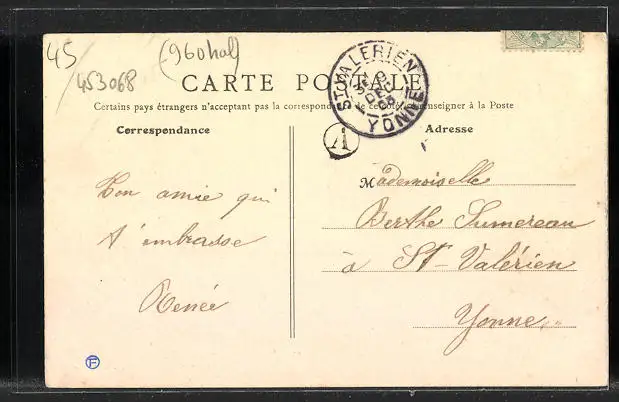 45
453068
(960hab)
CARTE POSTALE
ST-VALERIEN
YONNE
Certains pays étrangers n'acceptant pas la correspondance de ce côté, se renseigner à la Poste
Correspondance
Adresse
A
Ton amie qui
t'embrasse
Renée
Mademoiselle
Berthe Sumereau
à St-Valérien
Yonne
F